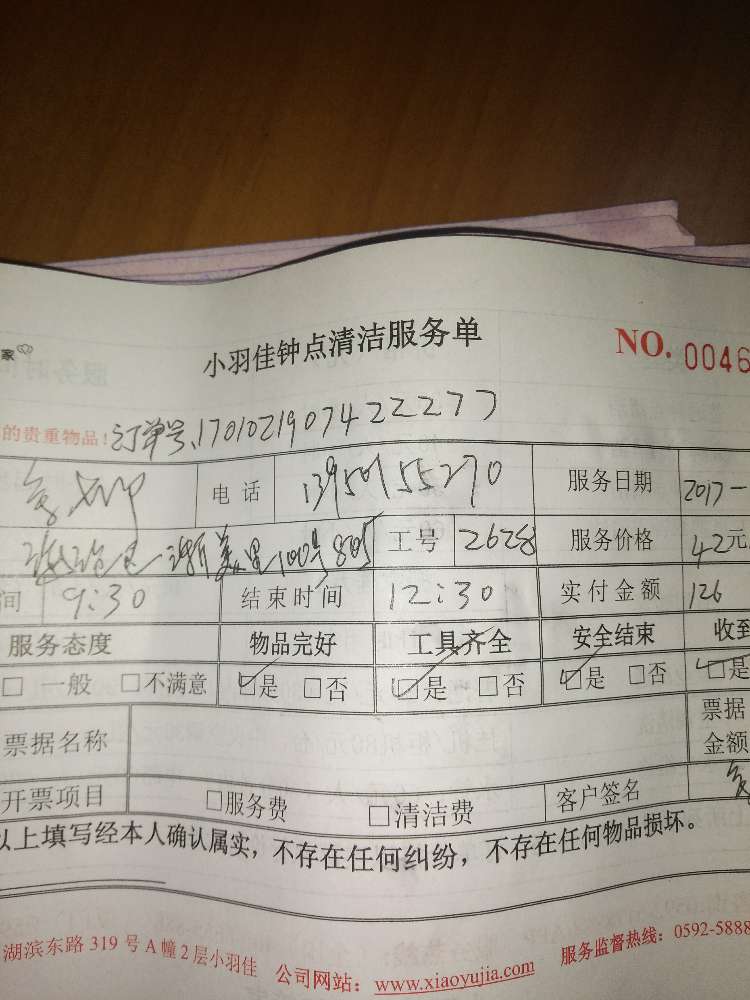 家
小羽佳钟点清洁服务单 NO. 0046
的贵重物品! 订单号、17010219074222277
电话 13950155270 服务日期 2017-
100号805 工号 2628 服务价格 42元
间 9:30 结束时间 12:30 实付金额 126
服务态度 物品完好 工具齐全 安全结束 收到
□ 一般 □不满意 ☑是 □否 ☑是 □否 ☑是 □否 ☑是
票据名称 票据
金额
开票项目 □服务费 □清洁费 客户签名
以上填写经本人确认属实，不存在任何纠纷，不存在任何物品损坏。
湖滨东路 319 号 A 幢 2 层小羽佳 公司网站：www.xiaoyujia.com 服务监督热线：0592-5888